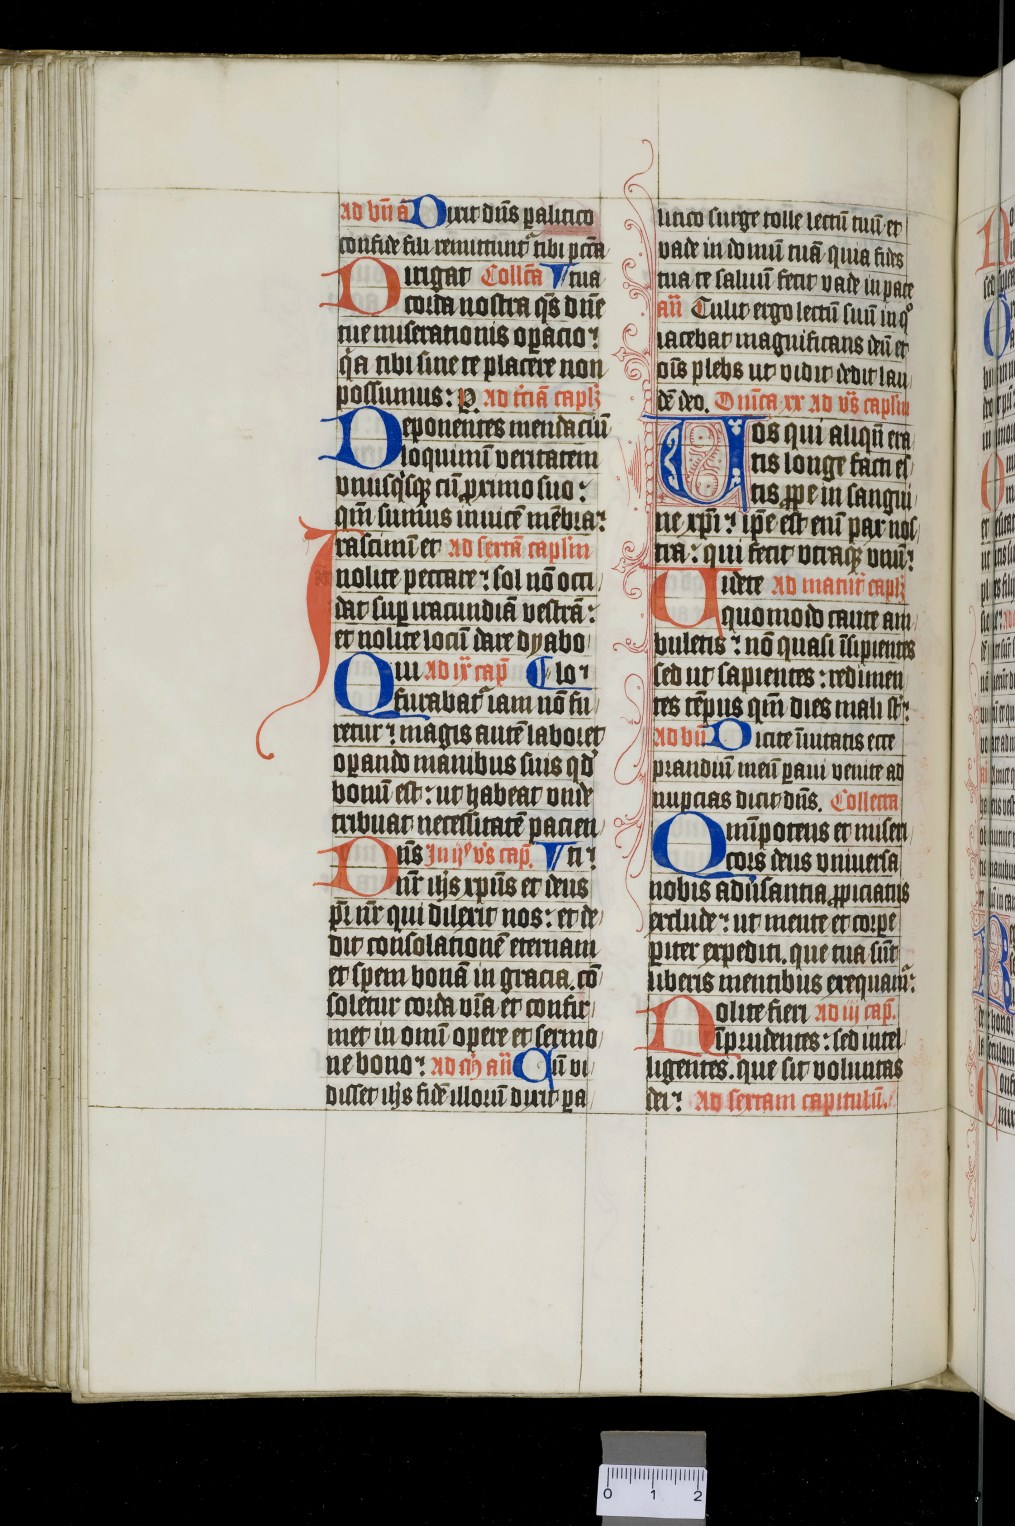 Ad bn̄ a Dixit dn̄s ꝑalitico
confide fili remittunt᷑ tibi pctā
Dirigat Collcta V tua
corda nostra qs̄ dn̄e
tue miserationis oꝑacio:
qa tibi sine te placere non
possumus: P. Ad tciā caplꝫ
Deponentes mendaciū
loquimī veritatem
vnusqsqꝫ cū ꝓximo suo:
qm̄ sumus inuicē mēbra:
Irascimī et Ad sextā caplm
nolite peccare: sol nō occi
dat suꝑ iracundiā vestrā:
et nolite locū dare dyabo
Qui Ad ix cap̄ C lo:
furabat᷑ iam nō fu
retur: magis autē laboret
oꝑando manibus suis qd̓
bonū est: ut habeat vnde
tribuat necessitatē pacien
Dn̄s In ijs vs̄ cap̄. V ti:
nr̄ ihs xp̄us et deus
pr̄ nr̄ qui dilexit nos: et de
dit consolationē eternam
et spem bonā in gracia. cō
soletur corda vr̄a et confir
met in omī opere et sermo
ne bono: Ad m̄ an̄ Cū vi
disset ihs fidē illorū dixit ꝑa
litico surge tolle lectū tuū et
vade in domū tuā quia fides
tua te saluū fecit vade in pace
an̄ Tulit ergo lectū suū in qͦ
iacebat magnificans deū et
oīs plebs ut vidit dedit lau
dē deo. Dnīca xx Ad vs̄ caplm
Vos qui aliqn̄ era
tis longe facti es
tis ꝓpe in sangui
ne xp̄i: ip̄e est enī pax nos
tra: qui fecit vtraqꝫ vnū:
Uidete Ad matut᷑ caplꝫ
quomodo caute am
buletis: nō quasi īsipientes
sed ut sapientes: redimen
tes tēpus qm̄ dies mali st̄:
Ad bn̄ Dicite īuitatis ecce
prandiū meū ꝑaui venite ad
nupcias dicit dn̄s. Collecta
Omīpotens et miseri
cors deus vniuersa
nobis aduīsantia ꝓpiciatus
exclude: ut mente et corꝑe
pariter expediti. que tua sūt
liberis mentibus exequam᷑:
Nolite fieri Ad iij cap̄.
īprudentes: sed intel
ligentes. que sit voluntas
dei: Ad sextam capitulū.